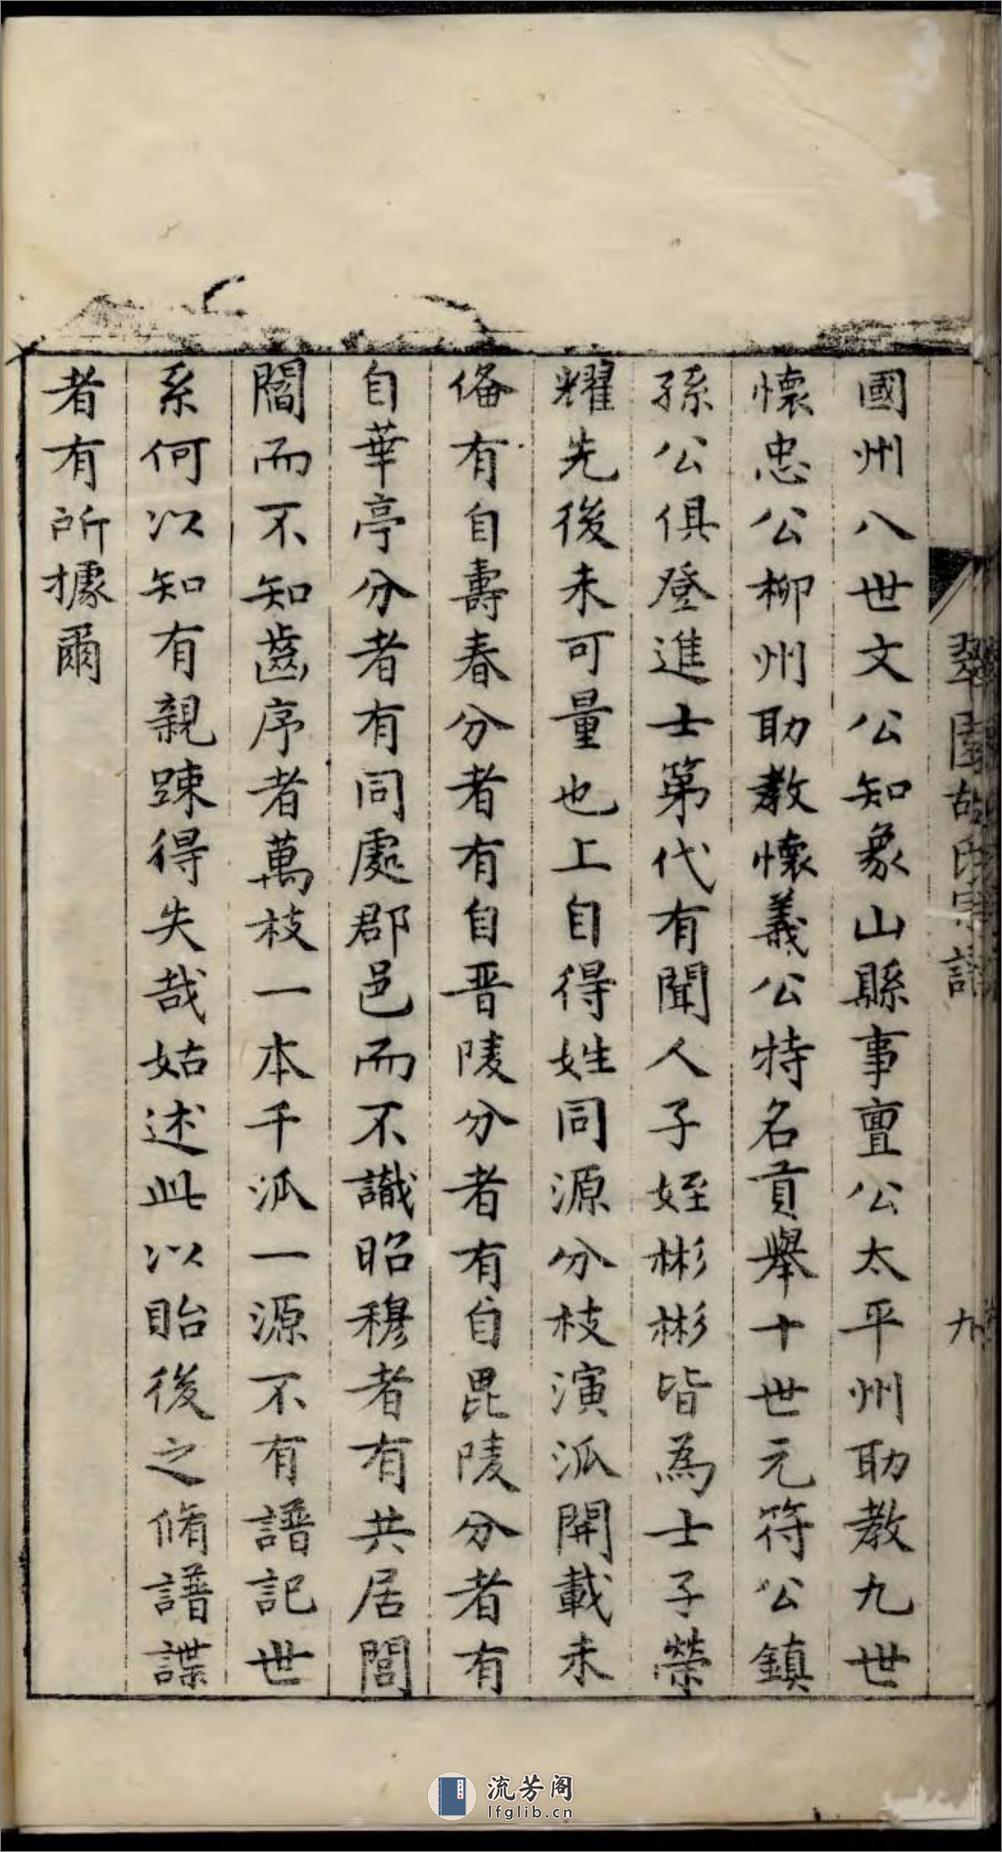 國州八世文公知象山縣事亶公太平州助教九世
懷忠公柳州助教懷義公特名貢舉十世元符公鎮
孫公俱登進士第代有聞人子姪彬彬皆為士子榮
耀先後未可量也上自得姓同源分枝演派開載未
俻有自壽春分者有自晋陵分者有自毘陵分者有
自華亭分者有同處郡邑而不識昭穆者有共居閭
閻而不知齒序者萬枝一本千派一源不有譜記世
系何以知有親踈得失哉姑述此以貽後之脩譜諜
者有所據爾
九
流芳阁
lfglib.cn